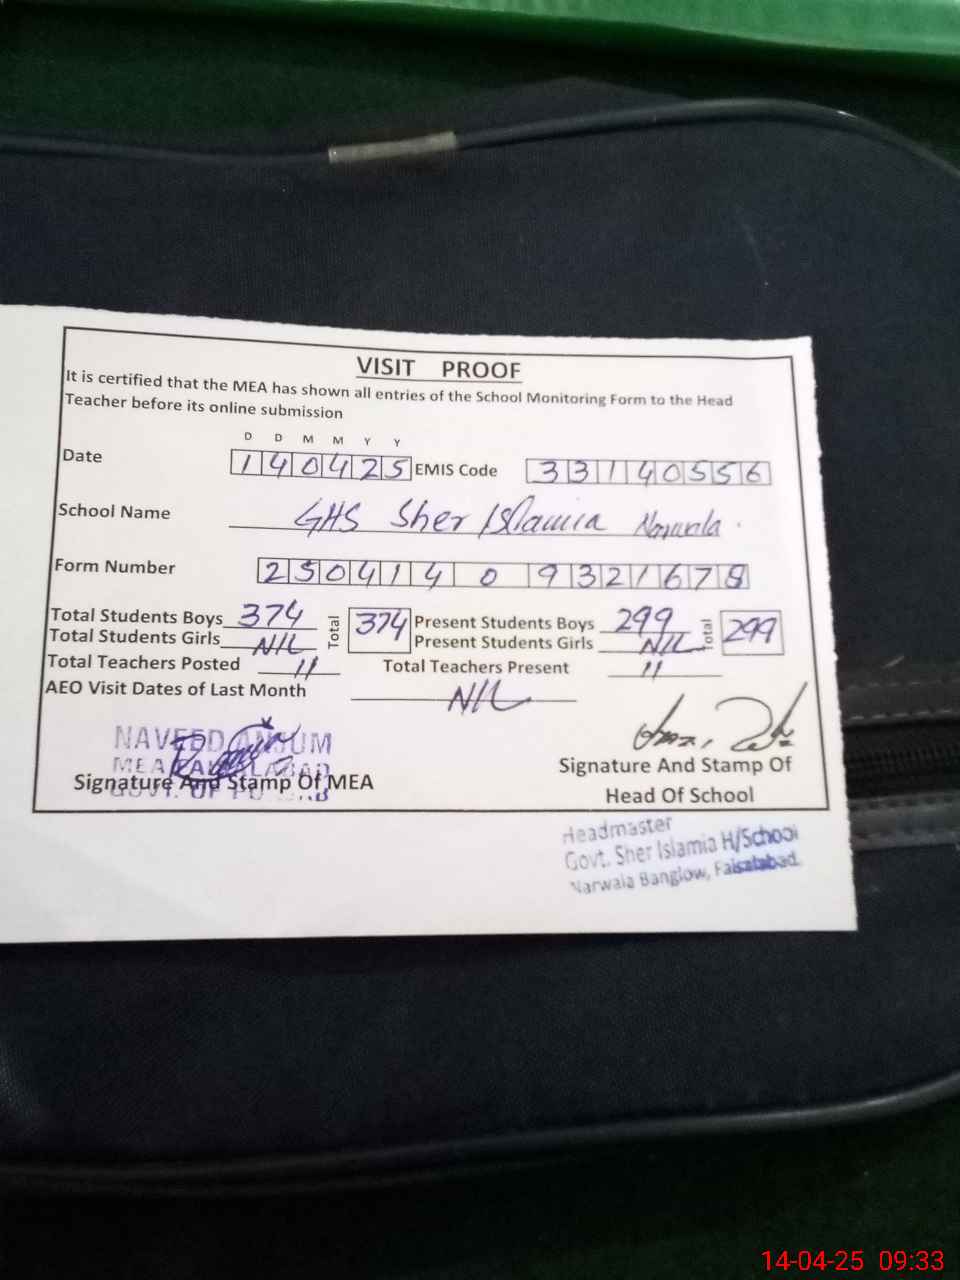 VISIT PROOF
It is certified that the MEA has shown all entries of the School Monitoring Form to the Head
Teacher before its online submission
D D M M Y Y
Date 140425 EMIS Code 33140556
School Name GHS Sher Islamia Narwala
Form Number 250414 0 9321678
Total Students Boys 374 Total 374 Present Students Boys 299 Total 299
Total Students Girls NIL Present Students Girls NIL
Total Teachers Posted 11 Total Teachers Present 11
AEO Visit Dates of Last Month NIL
NAVEED ANJUM
MEA FAISALABAD
GOVT. OF PUNJAB
Signature And Stamp Of MEA
Signature And Stamp Of
Head Of School
Headmaster
Govt. Sher Islamia H/School
Narwala Banglow, Faisalabad.
14-04-25 09:33